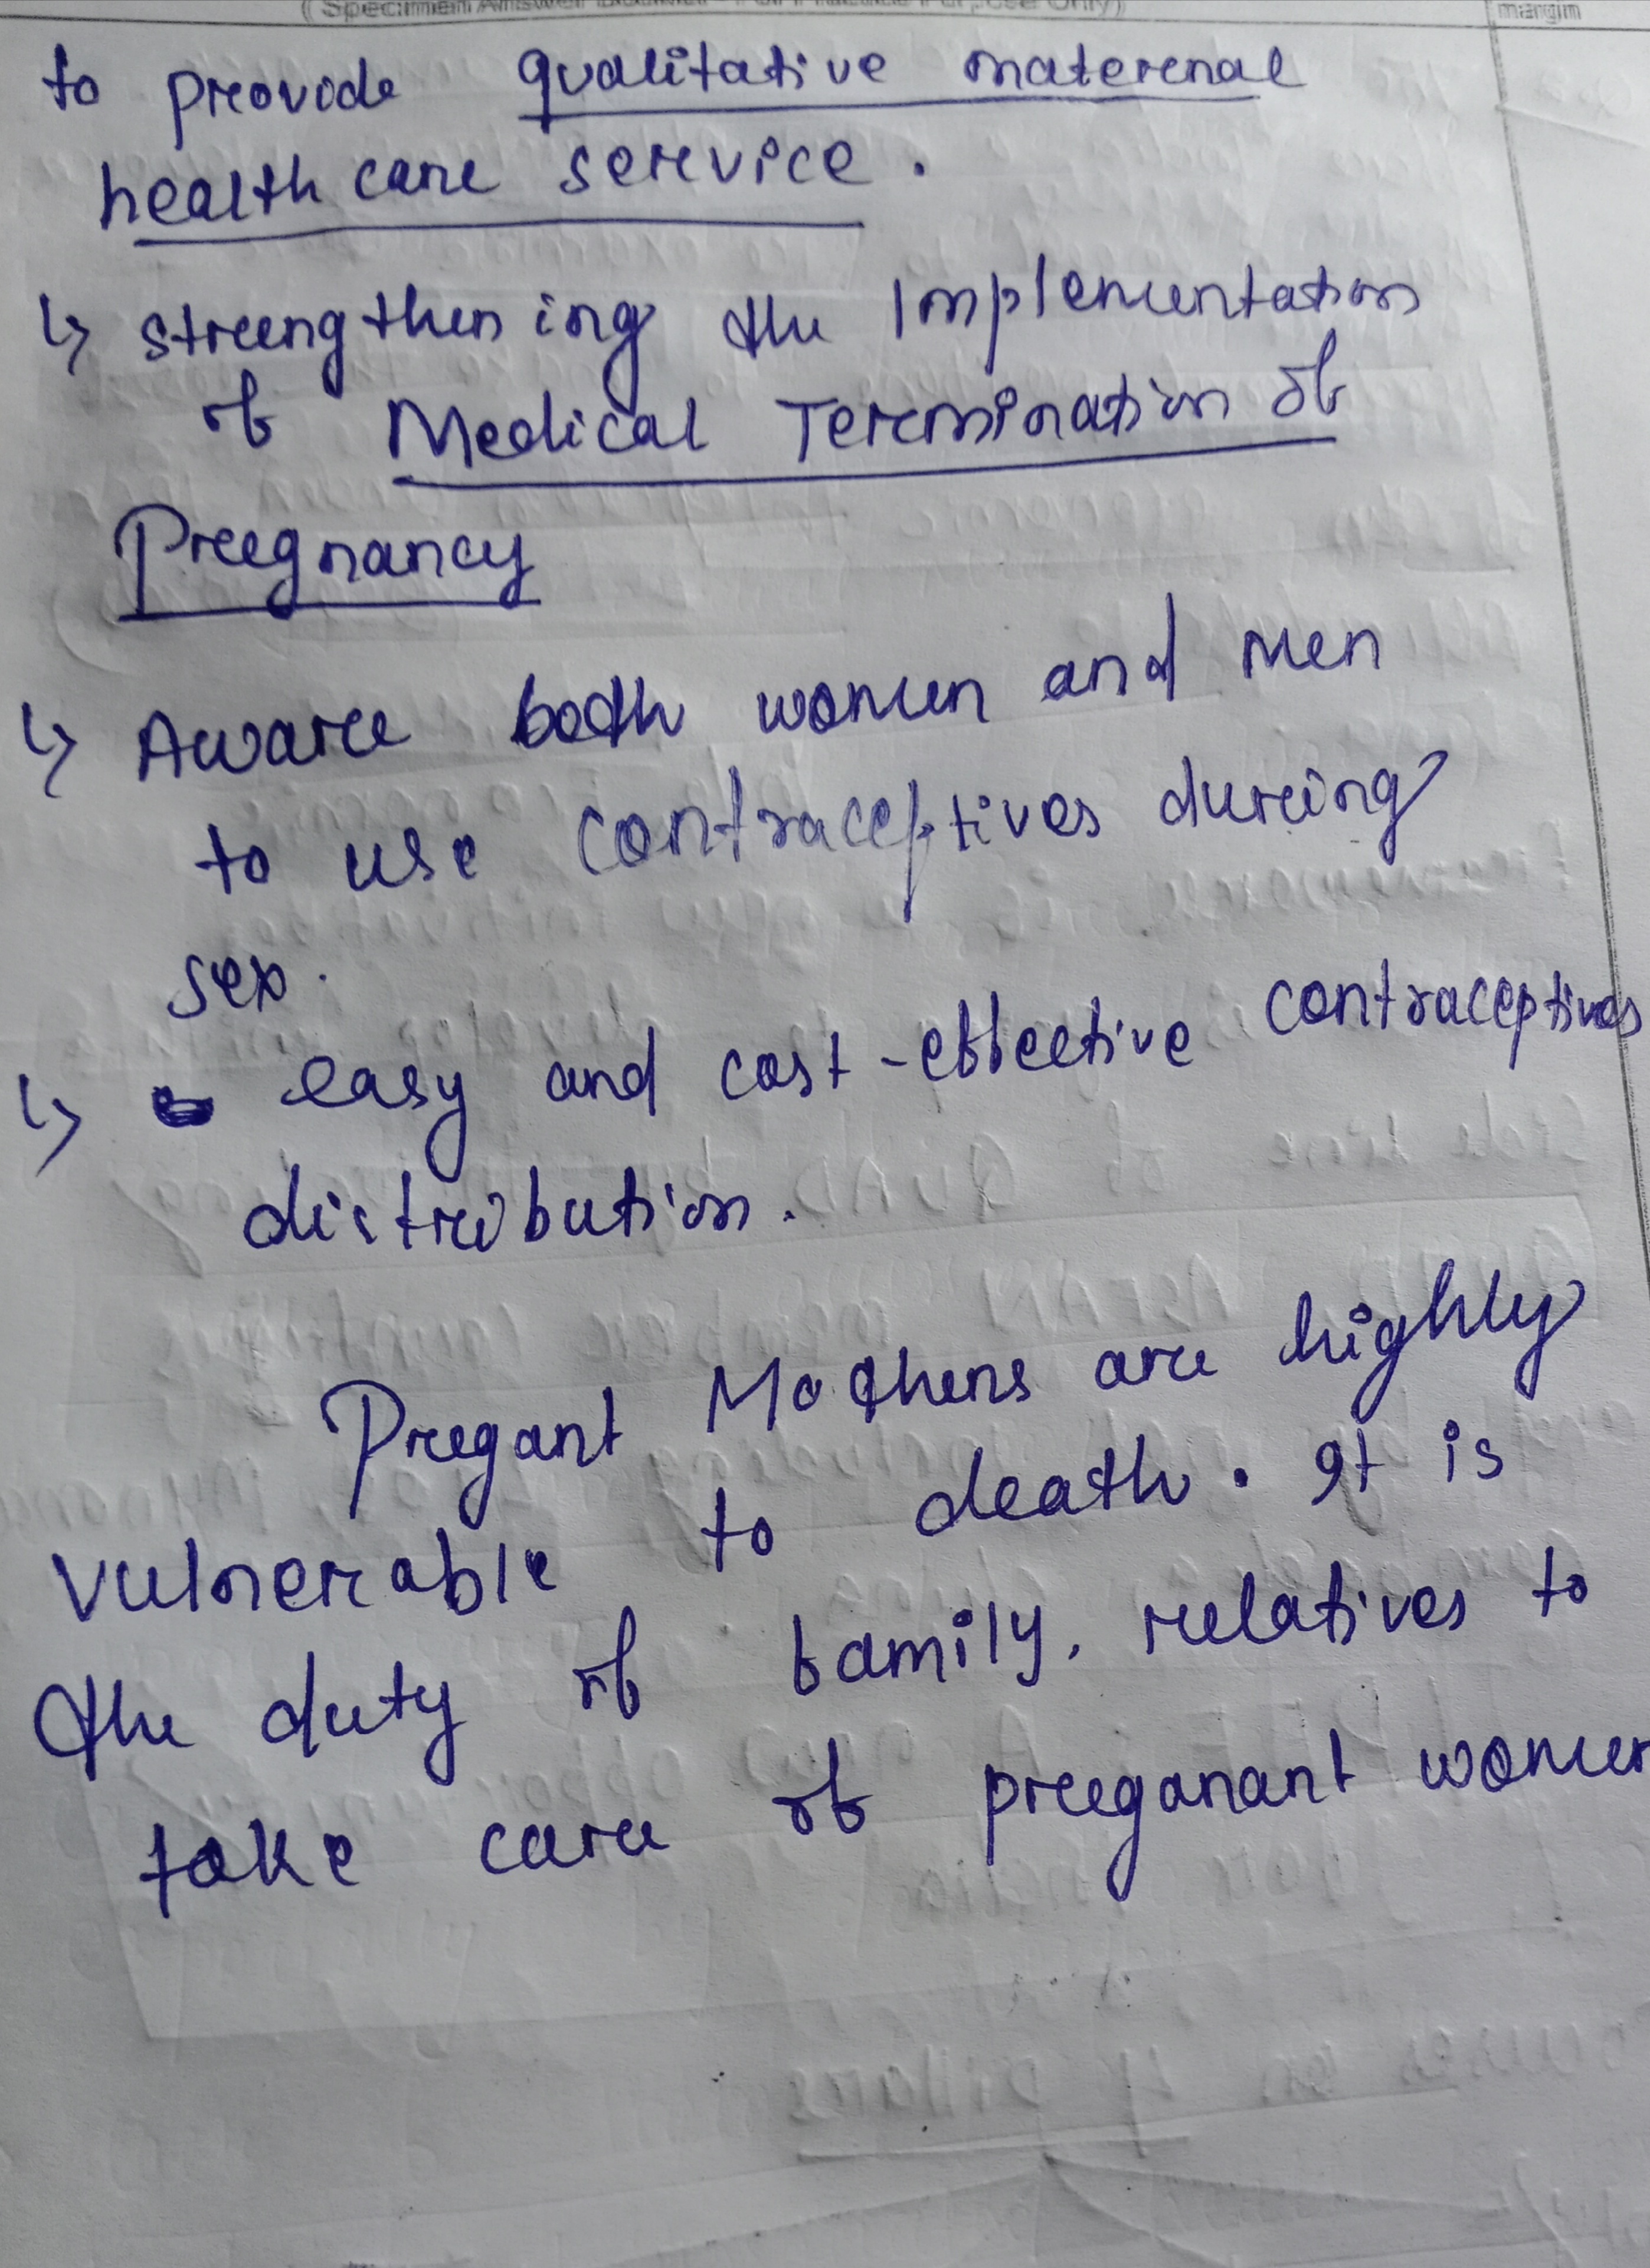 (Specimen Answer Booklet - For Practice Purpose Only)
margin
to provode qualitative maternal
health care service.
↳ strengthening the Implementation
of Medical Termination of
Pregnancy
↳ Aware both women and Men
to use contraceptives during
sex.
↳ easy and cost-effective contraceptives
distribution.
Pregant Mothers are highly
vulnerable to death. It is
the duty of family, relatives to
take care of preganant women